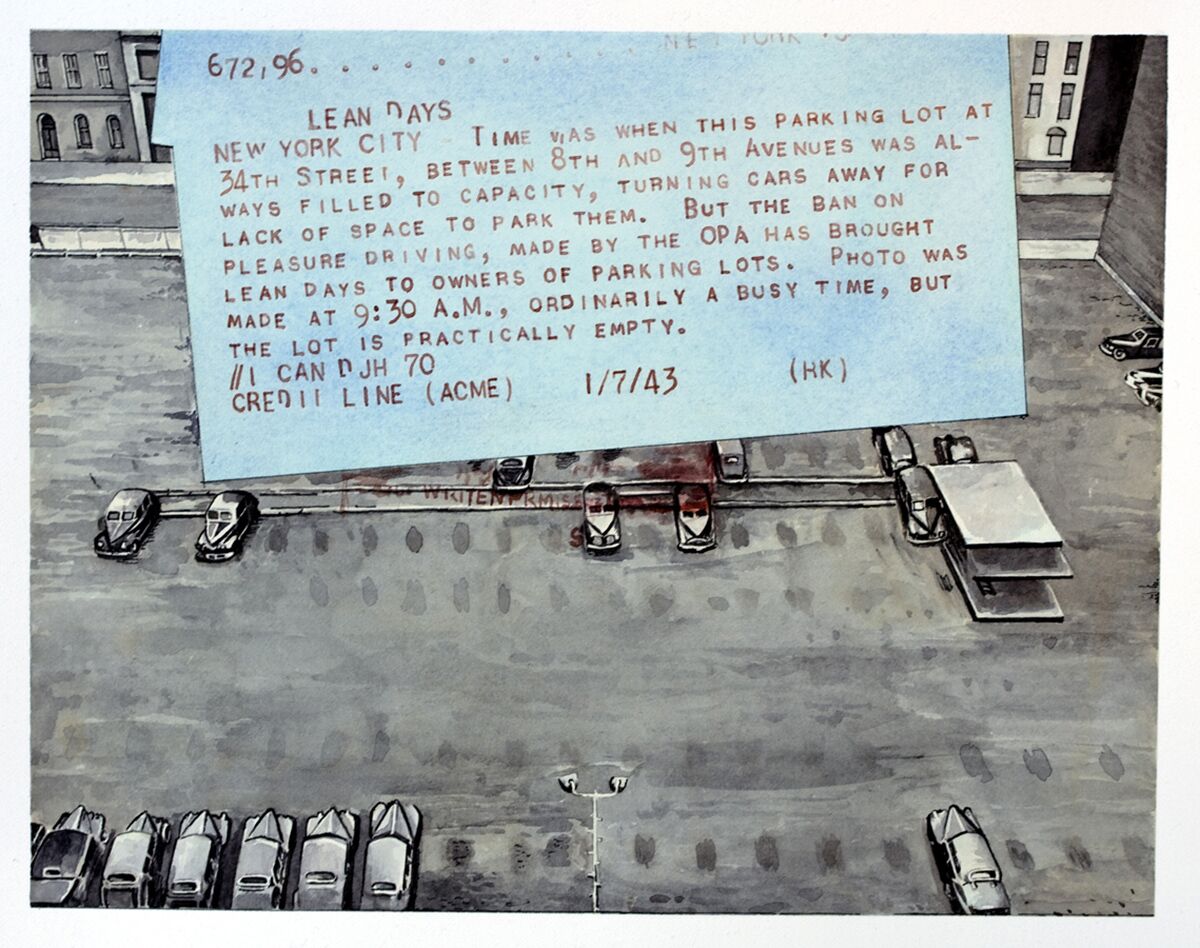 672,96. . . . . . . . . . . NEW YORK
LEAN DAYS
NEW YORK CITY - TIME WAS WHEN THIS PARKING LOT AT
34TH STREET, BETWEEN 8TH AND 9TH AVENUES WAS AL-
WAYS FILLED TO CAPACITY, TURNING CARS AWAY FOR
LACK OF SPACE TO PARK THEM. BUT THE BAN ON
PLEASURE DRIVING, MADE BY THE OPA HAS BROUGHT
LEAN DAYS TO OWNERS OF PARKING LOTS. PHOTO WAS
MADE AT 9:30 A.M., ORDINARILY A BUSY TIME, BUT
THE LOT IS PRACTICALLY EMPTY.
//1 CAN DJH 70
CREDIT LINE (ACME) 1/7/43 (RK)
WRITTEN